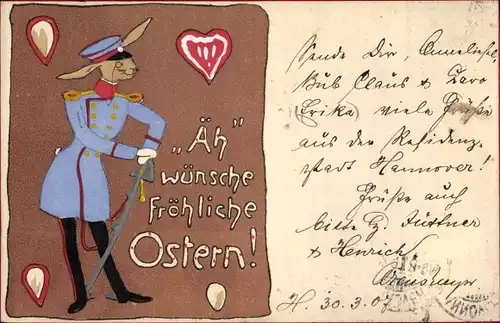 „Äh“
wünsche
fröhliche
Ostern!
Sende Dir, Anneliese,
Bub Claus &
(Erika) viele Grüße
aus der Residenz-
stadt Hannover!
Grüße auch
bitte Hüttner
& Henrich
H. 30.3.0